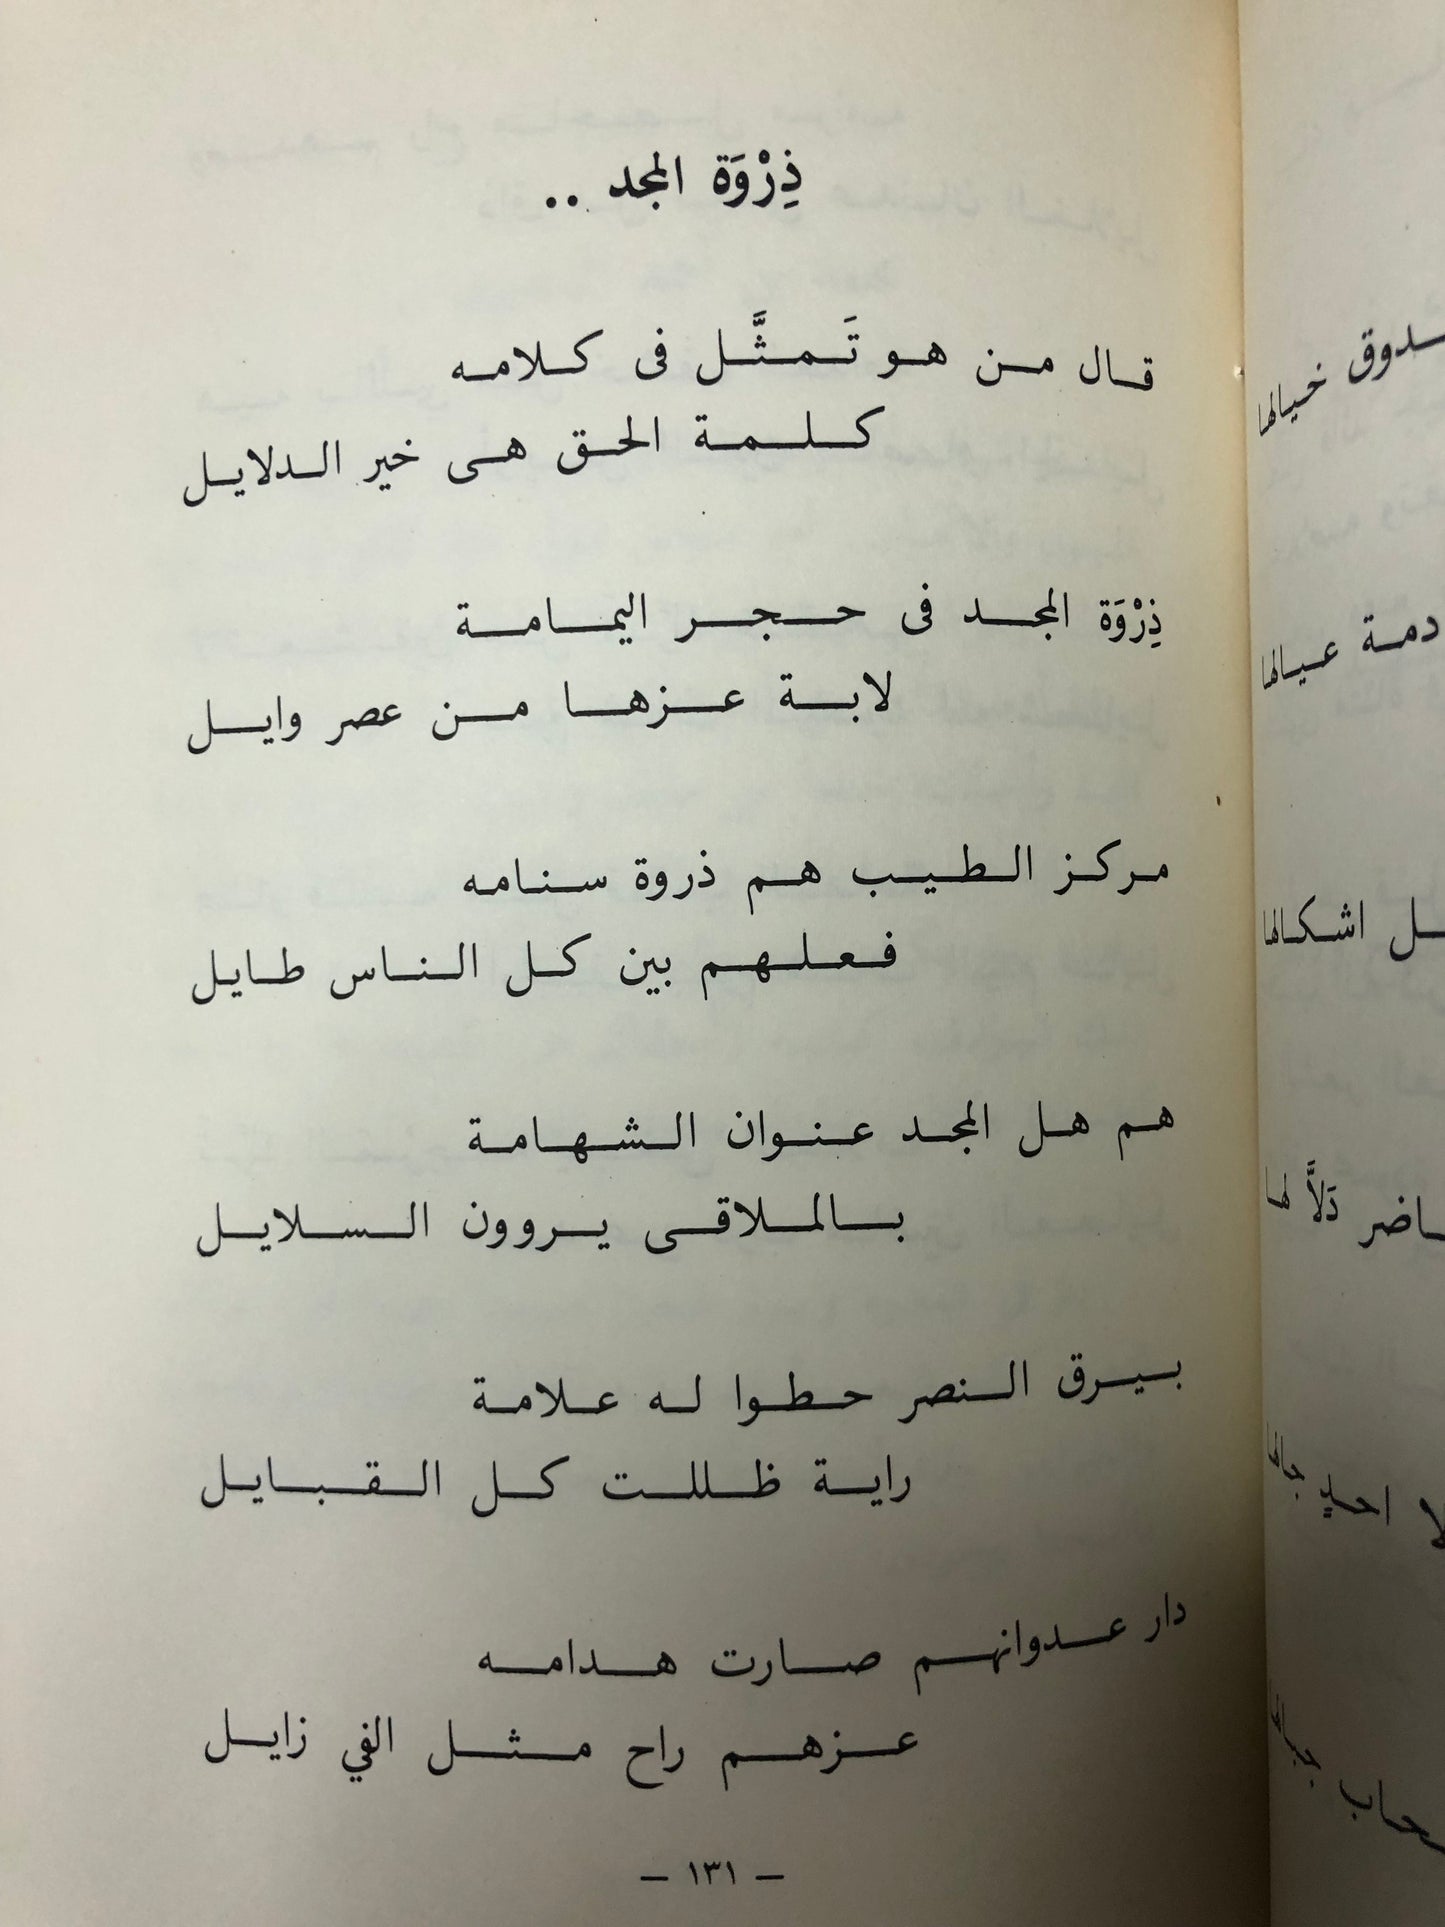 ذِرْوَة المجد ..
قال من هو تَمثَّل فى كلامه
كلمة الحق هى خير الدلايل
ذِرْوَة المجد فى حجر اليمامة
لابة عزها من عصر وايل
مركز الطيب هم ذروة سنامه
فعلهم بين كل الناس طايل
هم هل المجد عنوان الشهامة
بالملاقى يروون السلايل
بيرق النصر حطوا له علامة
راية ظللت كل القبايل
دار عدوانهم صارت هدامه
عزهم راح مثل الفي زايل
— ١٣١ —
خيالها
عيالها
اشكالها
دَلاَّلها
احدٍ